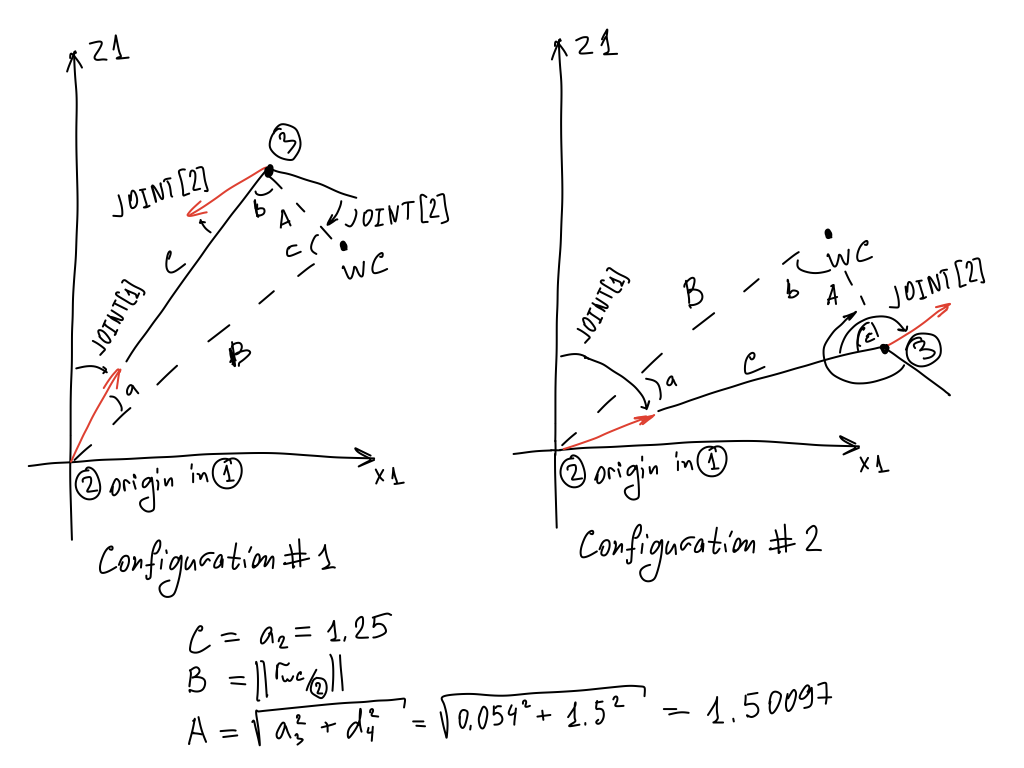 Z1
③
JOINT[2]
b
A
JOINT[2]
c
WC
C
JOINT[1]
B
a
② origin in ①
X1
Configuration #1
Z1
WC
B
b
A
JOINT[2]
JOINT[1]
c
③
C
a
② origin in ①
X1
Configuration #2
C = a₂ = 1.25
B = ||r̄wc/②||
A = √(a₃² + d₄²) = √(0.054² + 1.5²) = 1.50097